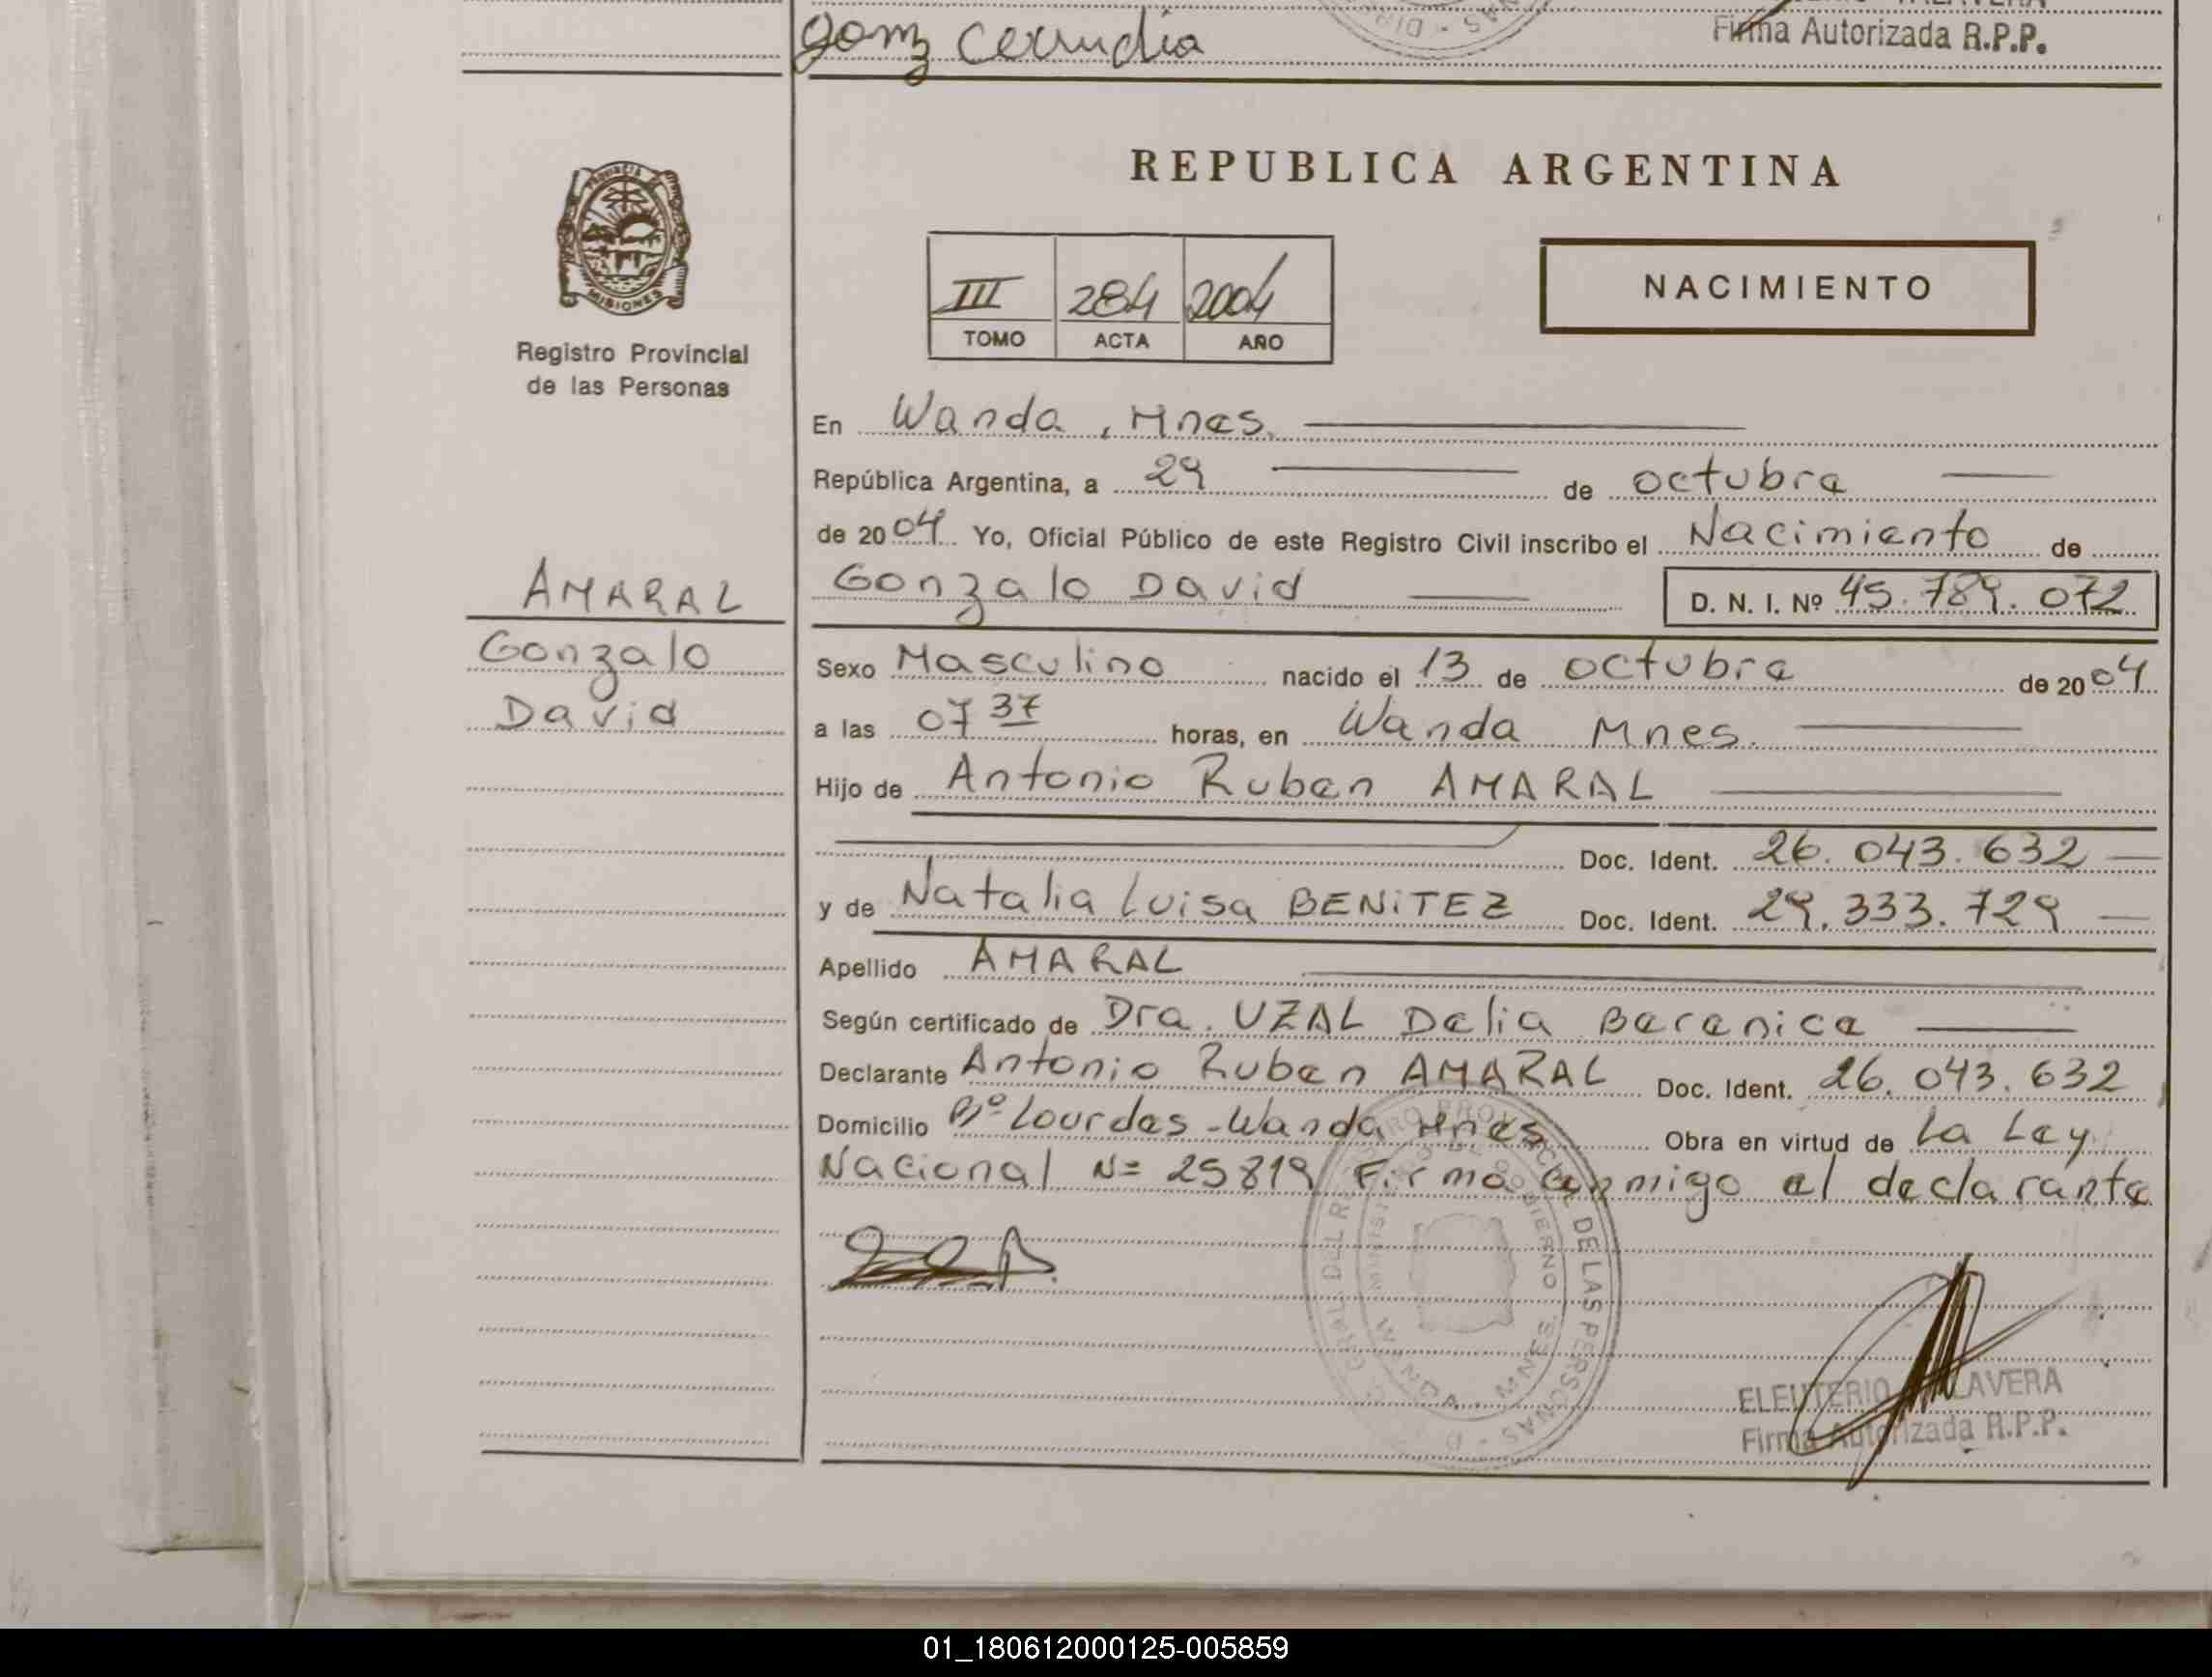 gomz
DIR
NAS
Firma Autorizada R.P.P.
PROVINCIA
MISIONES
Registro Provincial
de las Personas
REPUBLICA ARGENTINA
III 284 2004
TOMO ACTA AÑO
NACIMIENTO
En Wanda, Mnes.
República Argentina, a 29 de octubre
de 2004 Yo, Oficial Público de este Registro Civil inscribo el Nacimiento de
AMARAL
Gonzalo
David
Gonzalo David D. N. I. Nº 45.789.072
Sexo Masculino nacido el 13 de octubre de 2004
a las 07 37 horas, en Wanda Mnes.
Hijo de Antonio Ruben AMARAL
Doc. Ident. 26.043.632
y de Natalia Luisa BENITEZ Doc. Ident. 29.333.729
Apellido AMARAL
Según certificado de Dra. UZAL Delia Berenice
Declarante Antonio Ruben AMARAL Doc. Ident. 26.043.632
Domicilio Bº Lourdes - Wanda Mnes Obra en virtud de La Ley
Nacional Nº 25819 Firma conmigo el declarante
DE LAS PERSONAS
MINISTERIO DE GOBIERNO
WANDA - MNES.
ELEUTERIO TALAVERA
Firma Autorizada R.P.P.
01_180612000125-005859